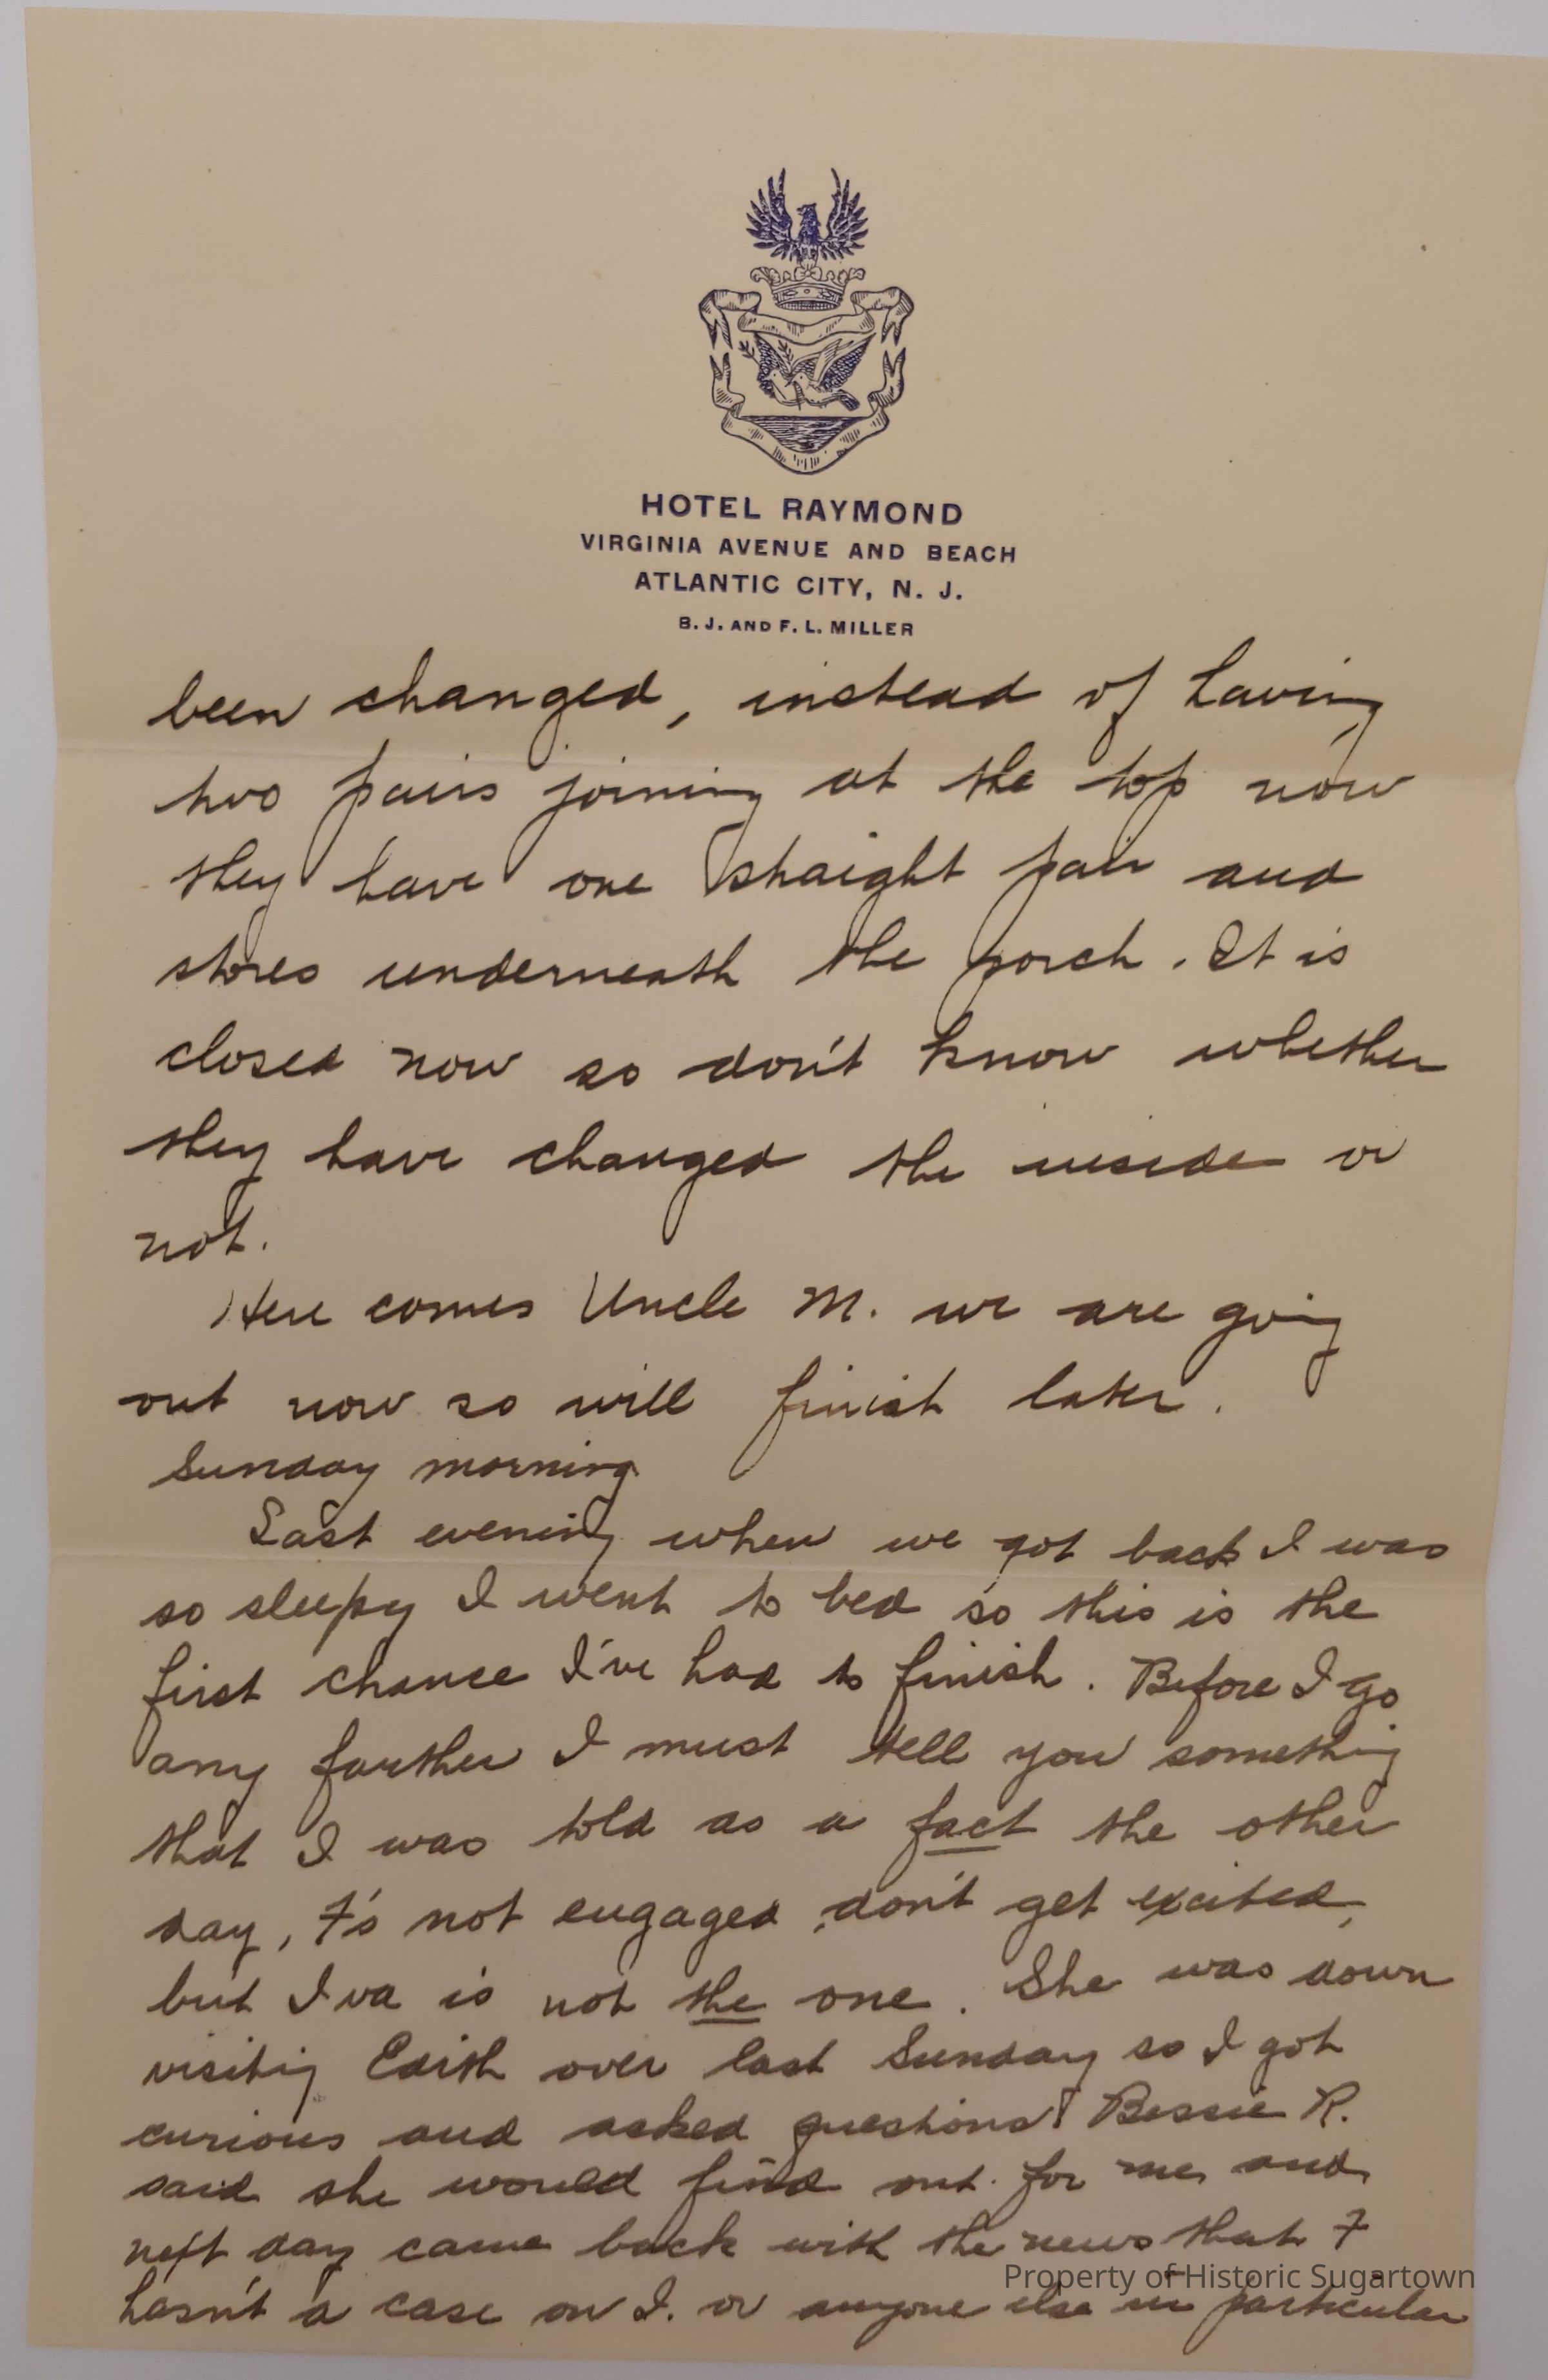 HOTEL RAYMOND
VIRGINIA AVENUE AND BEACH
ATLANTIC CITY, N. J.
B. J. AND F. L. MILLER
been changed, instead of having
two pairs joining at the top now
they have one straight pair and
stores underneath the porch. It is
closed now so don't know whether
they have changed the inside or
not.
Here comes Uncle M. we are going
out now so will finish later.
Sunday morning
Last evening when we got back I was
so sleepy I went to bed so this is the
first chance I've had to finish. Before I go
any further I must tell you something
that I was told as a fact the other
day, F's not engaged, don't get excited,
but Iva is not the one. She was down
visiting Edith over last Sunday so I got
curious and asked questions Bessie R.
said she would find out for me and
next day came back with the news that F
hasn't a case on I. or anyone else in particular
Property of Historic Sugartown